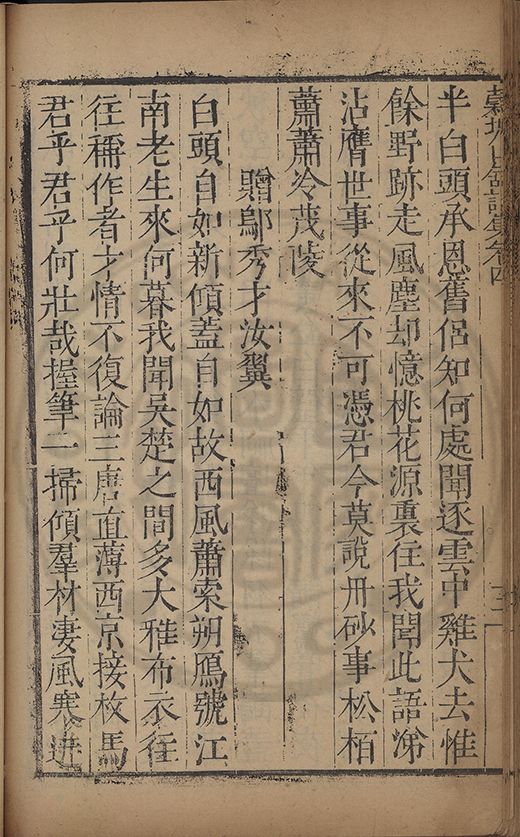 半白頭承恩舊侶知何處聞逐雲中雞犬去惟
餘野跡走風塵却憶桃花源裏住我聞此語涕
沾膺世事從來不可憑君今莫說丹砂事松栢
蕭蕭冷茂陵
贈鄔秀才汝翼
白頭自如新傾蓋自如故西風蕭索朔鴈號江
南老生來何暮我聞吳楚之間多大雅布衣往
往稱作者才情不復論三唐直薄西京接枚馬
君乎君乎何壯哉握筆一掃傾羣材淒風寒